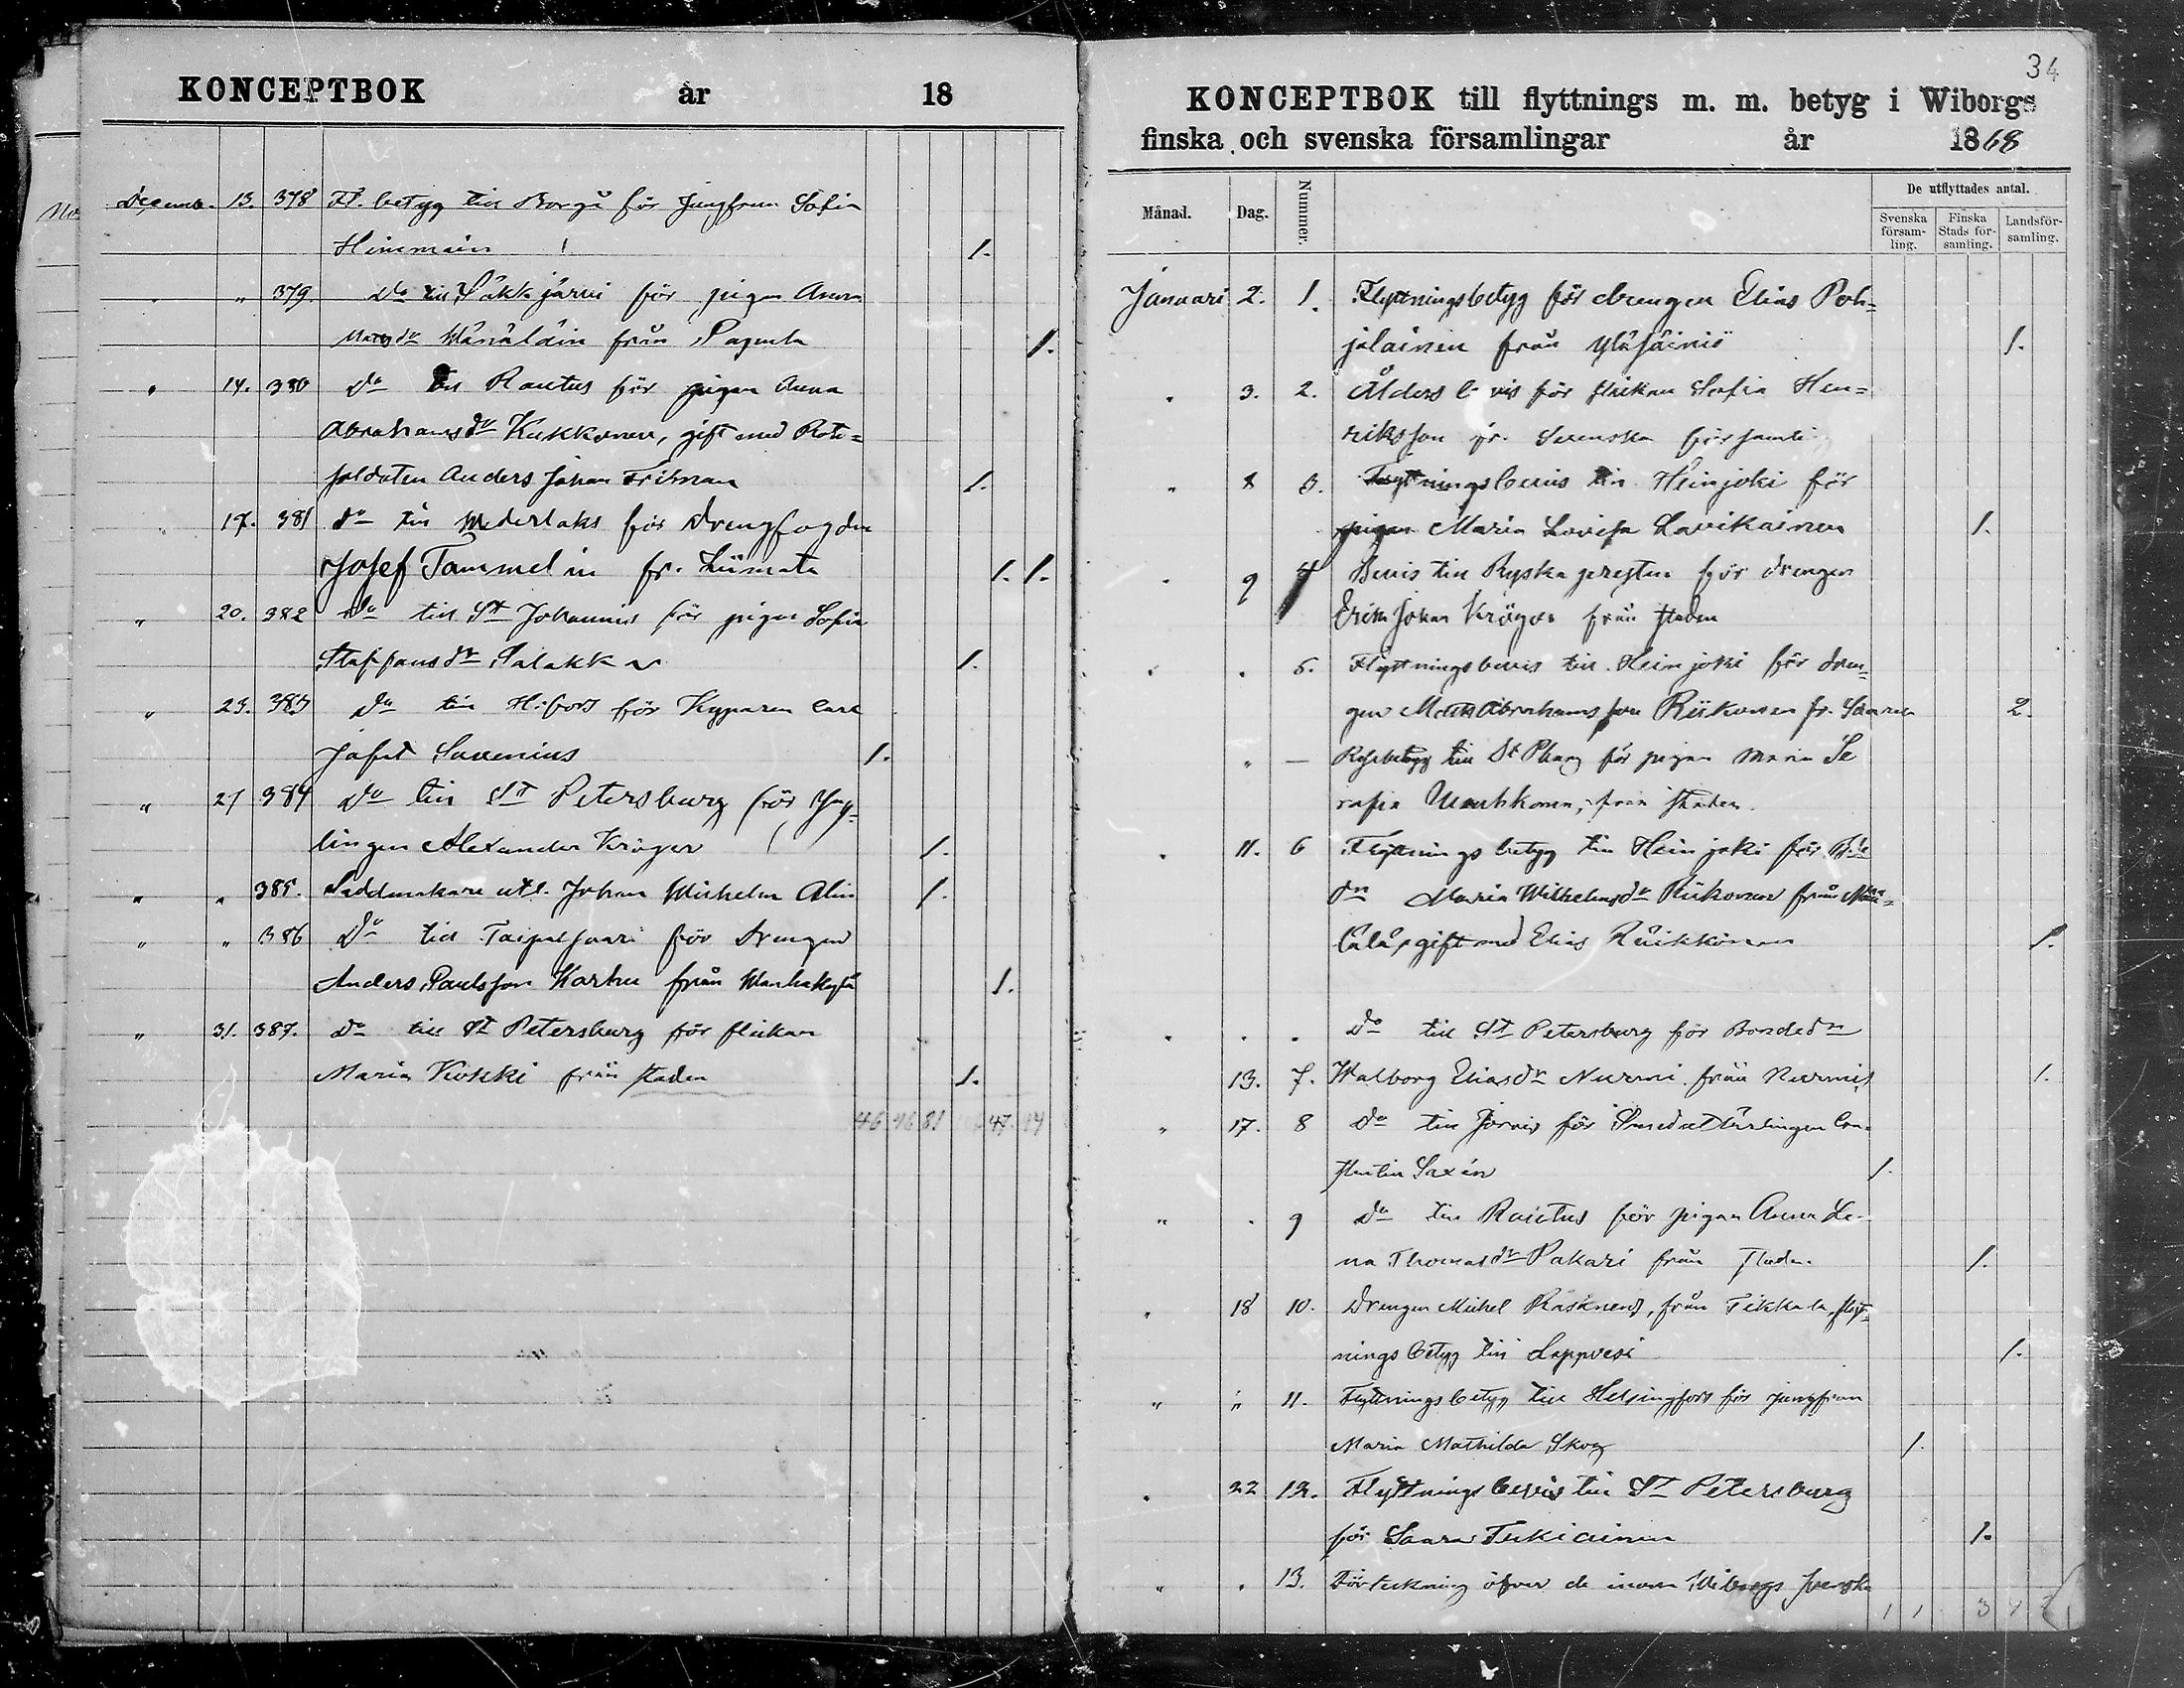 KONCEPTBOK år 18
Decemb. 13. 378 Fl. betyg till Borgå för Jungfrun Sofia
1.
" 379. Do till Säkkjärvi för pigan Anna
från 1.
" 14. 380 Do till Rautus för pigan Anna
Abrahamsdr Kukkonen, gift med Rote=
soldaten Anders Johan Friman 1.
" 17. 381 Do till Wederlaks för Drengfogden
Josef Tammelin fr. Liimata 1. 1.
" 20. 382 Do till St Johannis för pigan Sofia
Staffansdr 1.
" 23. 383 Do till H:fors för Kyparen Carl
Jafet Savenius 1.
" 27 384 Do till St Petersburg för Yng=
lingen Alexander Kröger 1.
" " 385. Johan Wilhelm Alin 1.
" " 386 Do till Taipalsaari för Drengen
Anders Paulsson Karhu från Wanhakylä 1.
" 31. 387. Do till St Petersburg för flickan
Maria Kokki från staden 1.
46 46 81 47. 44
34
KONCEPTBOK till flyttnings m. m. betyg i Wiborgs
finska och svenska församlingar år 1868
Månad. Dag. Nummer. De utflyttades antal.
Svenska församling. Finska Stads församling. Landsförsamling.
Januari 2. 1. Flyttningsbetyg för drengen Elias Poh=
jalainen från 1.
" 3. 2. Ålders bevis för flickan Sofia Hen=
riksson fr. Svenska församli
" 8 3. Flyttningsbevis till Heinjoki för
pigan Maria Lovisa Lavikainen 1.
" 9 4 Bevis till Ryska för drengen
Erik Johan Kröger från staden
" " 5. Flyttningsbevis till Heinjoki för dren=
gen Matts Abrahamsson Riikonen fr. 2.
" — till St Pburg för pigan Maria Se
rafia från staden.
" 11. 6 Flyttningsbetyg till Heinjoki för
dn Maria Wilhelmsdr Riikonen från
gift med Elias 1.
" " " Do till St Petersburg för Bondedn
13. 7. Walborg Eliasdr Nurmi från Nurmis 1.
" 17. 8 Do till Jorvis för Con=
stantin Saxén 1.
" " 9 Do till Rautus för pigan Anna Le=
na Thomasdr Pakari från staden. 1.
" 18 10. Drengen Michel Räsänen, från Tikkala, flyt=
nings betyg till Lappvesi 1.
" " 11. Flyttningsbetyg till Helsingfors för jungfrun
Maria Mathilda Skog 1.
" 22 12. Flyttningsbevis till St Petersburg
för Saara Tukiainen 1.
" " 13. Förteckning öfver de inom Wiborgs svenska
1 1 3 4